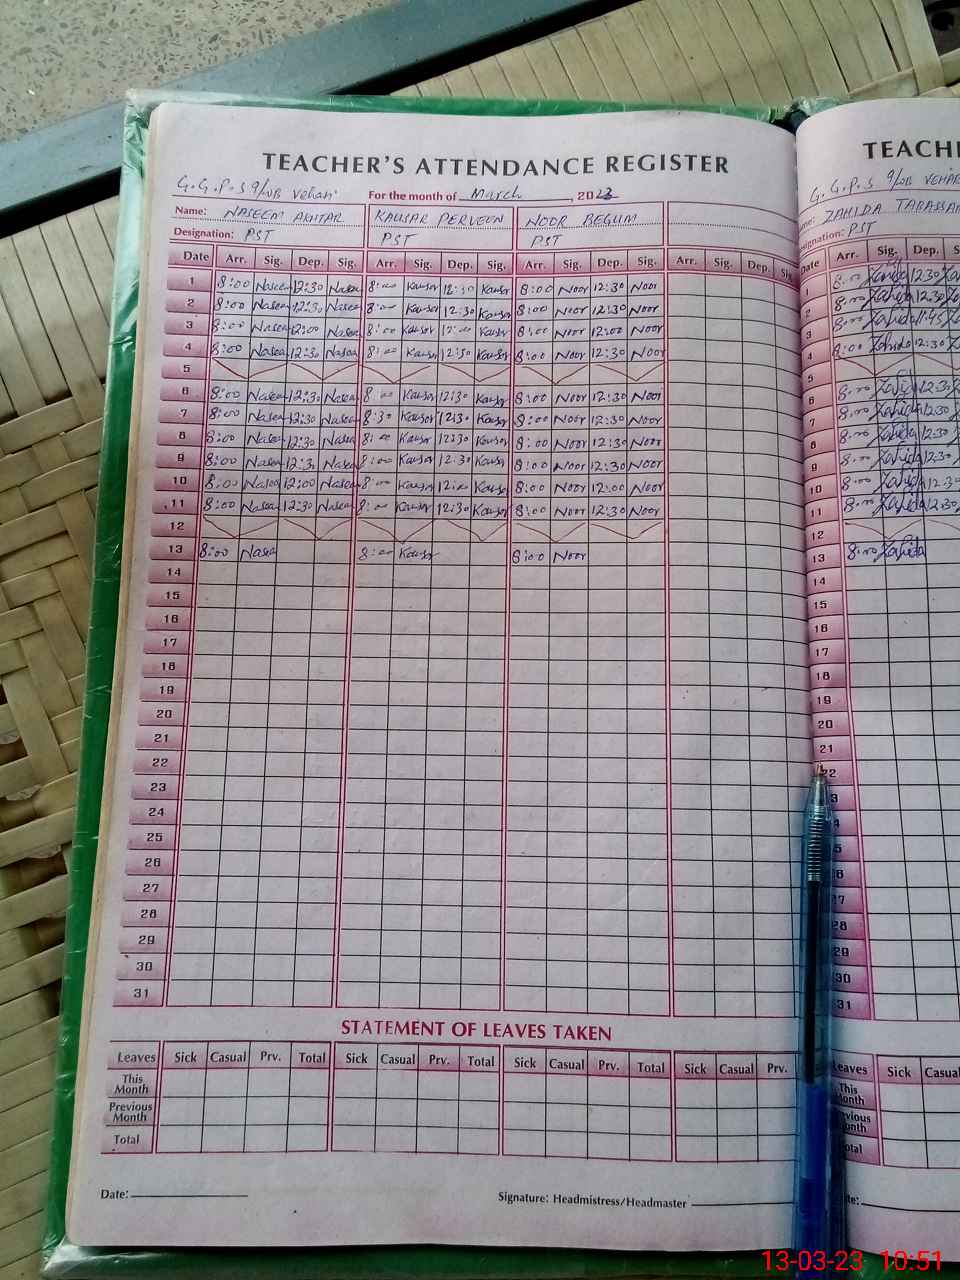 TEACHER'S ATTENDANCE REGISTER
G.G.P.S 9/WB Vehari For the month of March, 2023
Name: NASEEM AKHTAR KAUSAR PERVEEN NOOR BEGUM
Designation: PST PST PST
Date Arr. Sig. Dep. Sig. Arr. Sig. Dep. Sig. Arr. Sig. Dep. Sig. Arr. Sig. Dep. Sig.
1 8:00 Naseem 12:30 Naseem 8:00 Kausar 12:30 Kausar 8:00 Noor 12:30 Noor
2 8:00 Naseem 12:30 Naseem 8:00 Kausar 12:30 Kausar 8:00 Noor 12:30 Noor
3 8:00 Naseem 12:00 Naseem 8:00 Kausar 12:00 Kausar 8:00 Noor 12:00 Noor
4 8:00 Naseem 12:30 Naseem 8:00 Kausar 12:30 Kausar 8:00 Noor 12:30 Noor
5
6 8:00 Naseem 12:30 Naseem 8:00 Kausar 12:30 Kausar 8:00 Noor 12:30 Noor
7 8:00 Naseem 12:30 Naseem 8:30 Kausar 12:30 Kausar 8:00 Noor 12:30 Noor
8 8:00 Naseem 12:30 Naseem 8:00 Kausar 12:30 Kausar 8:00 Noor 12:30 Noor
9 8:00 Naseem 12:30 Naseem 8:00 Kausar 12:30 Kausar 8:00 Noor 12:30 Noor
10 8:00 Naseem 12:00 Naseem 8:00 Kausar 12:00 Kausar 8:00 Noor 12:00 Noor
11 8:00 Naseem 12:30 Naseem 8:00 Kausar 12:30 Kausar 8:00 Noor 12:30 Noor
12
13 8:00 Naseem 8:00 Kausar 8:00 Noor
14
15
16
17
18
19
20
21
22
23
24
25
26
27
28
29
30
31
STATEMENT OF LEAVES TAKEN
Leaves Sick Casual Prv. Total Sick Casual Prv. Total Sick Casual Prv. Total Sick Casual Prv.
This Month
Previous Month
Total
Date: Signature: Headmistress/Headmaster
TEACH
G.G.P.S 9/WB VEHAR
ame: ZAHIDA TABASSAM
esignation: PST
Date Arr. Sig. Dep. S
1 8:00 Zahida 12:30
2 8:00 Zahida 12:30
3 8:00 Zahida 11:45
4 8:00 Zahida 12:30
5
6 8:00 Zahida 12:30
7 8:00 Zahida 12:30
8 8:00 Zahida 12:30
9 8:00 Zahida 12:30
10 8:00 Zahida 12:30
11 8:00 Zahida 12:30
12
13 8:00 Zahida
14
15
16
17
18
19
20
21
22
3
4
5
6
7
28
29
30
31
eaves Sick Casual
This Month
vious onth
otal
te:
13-03-23 10:51